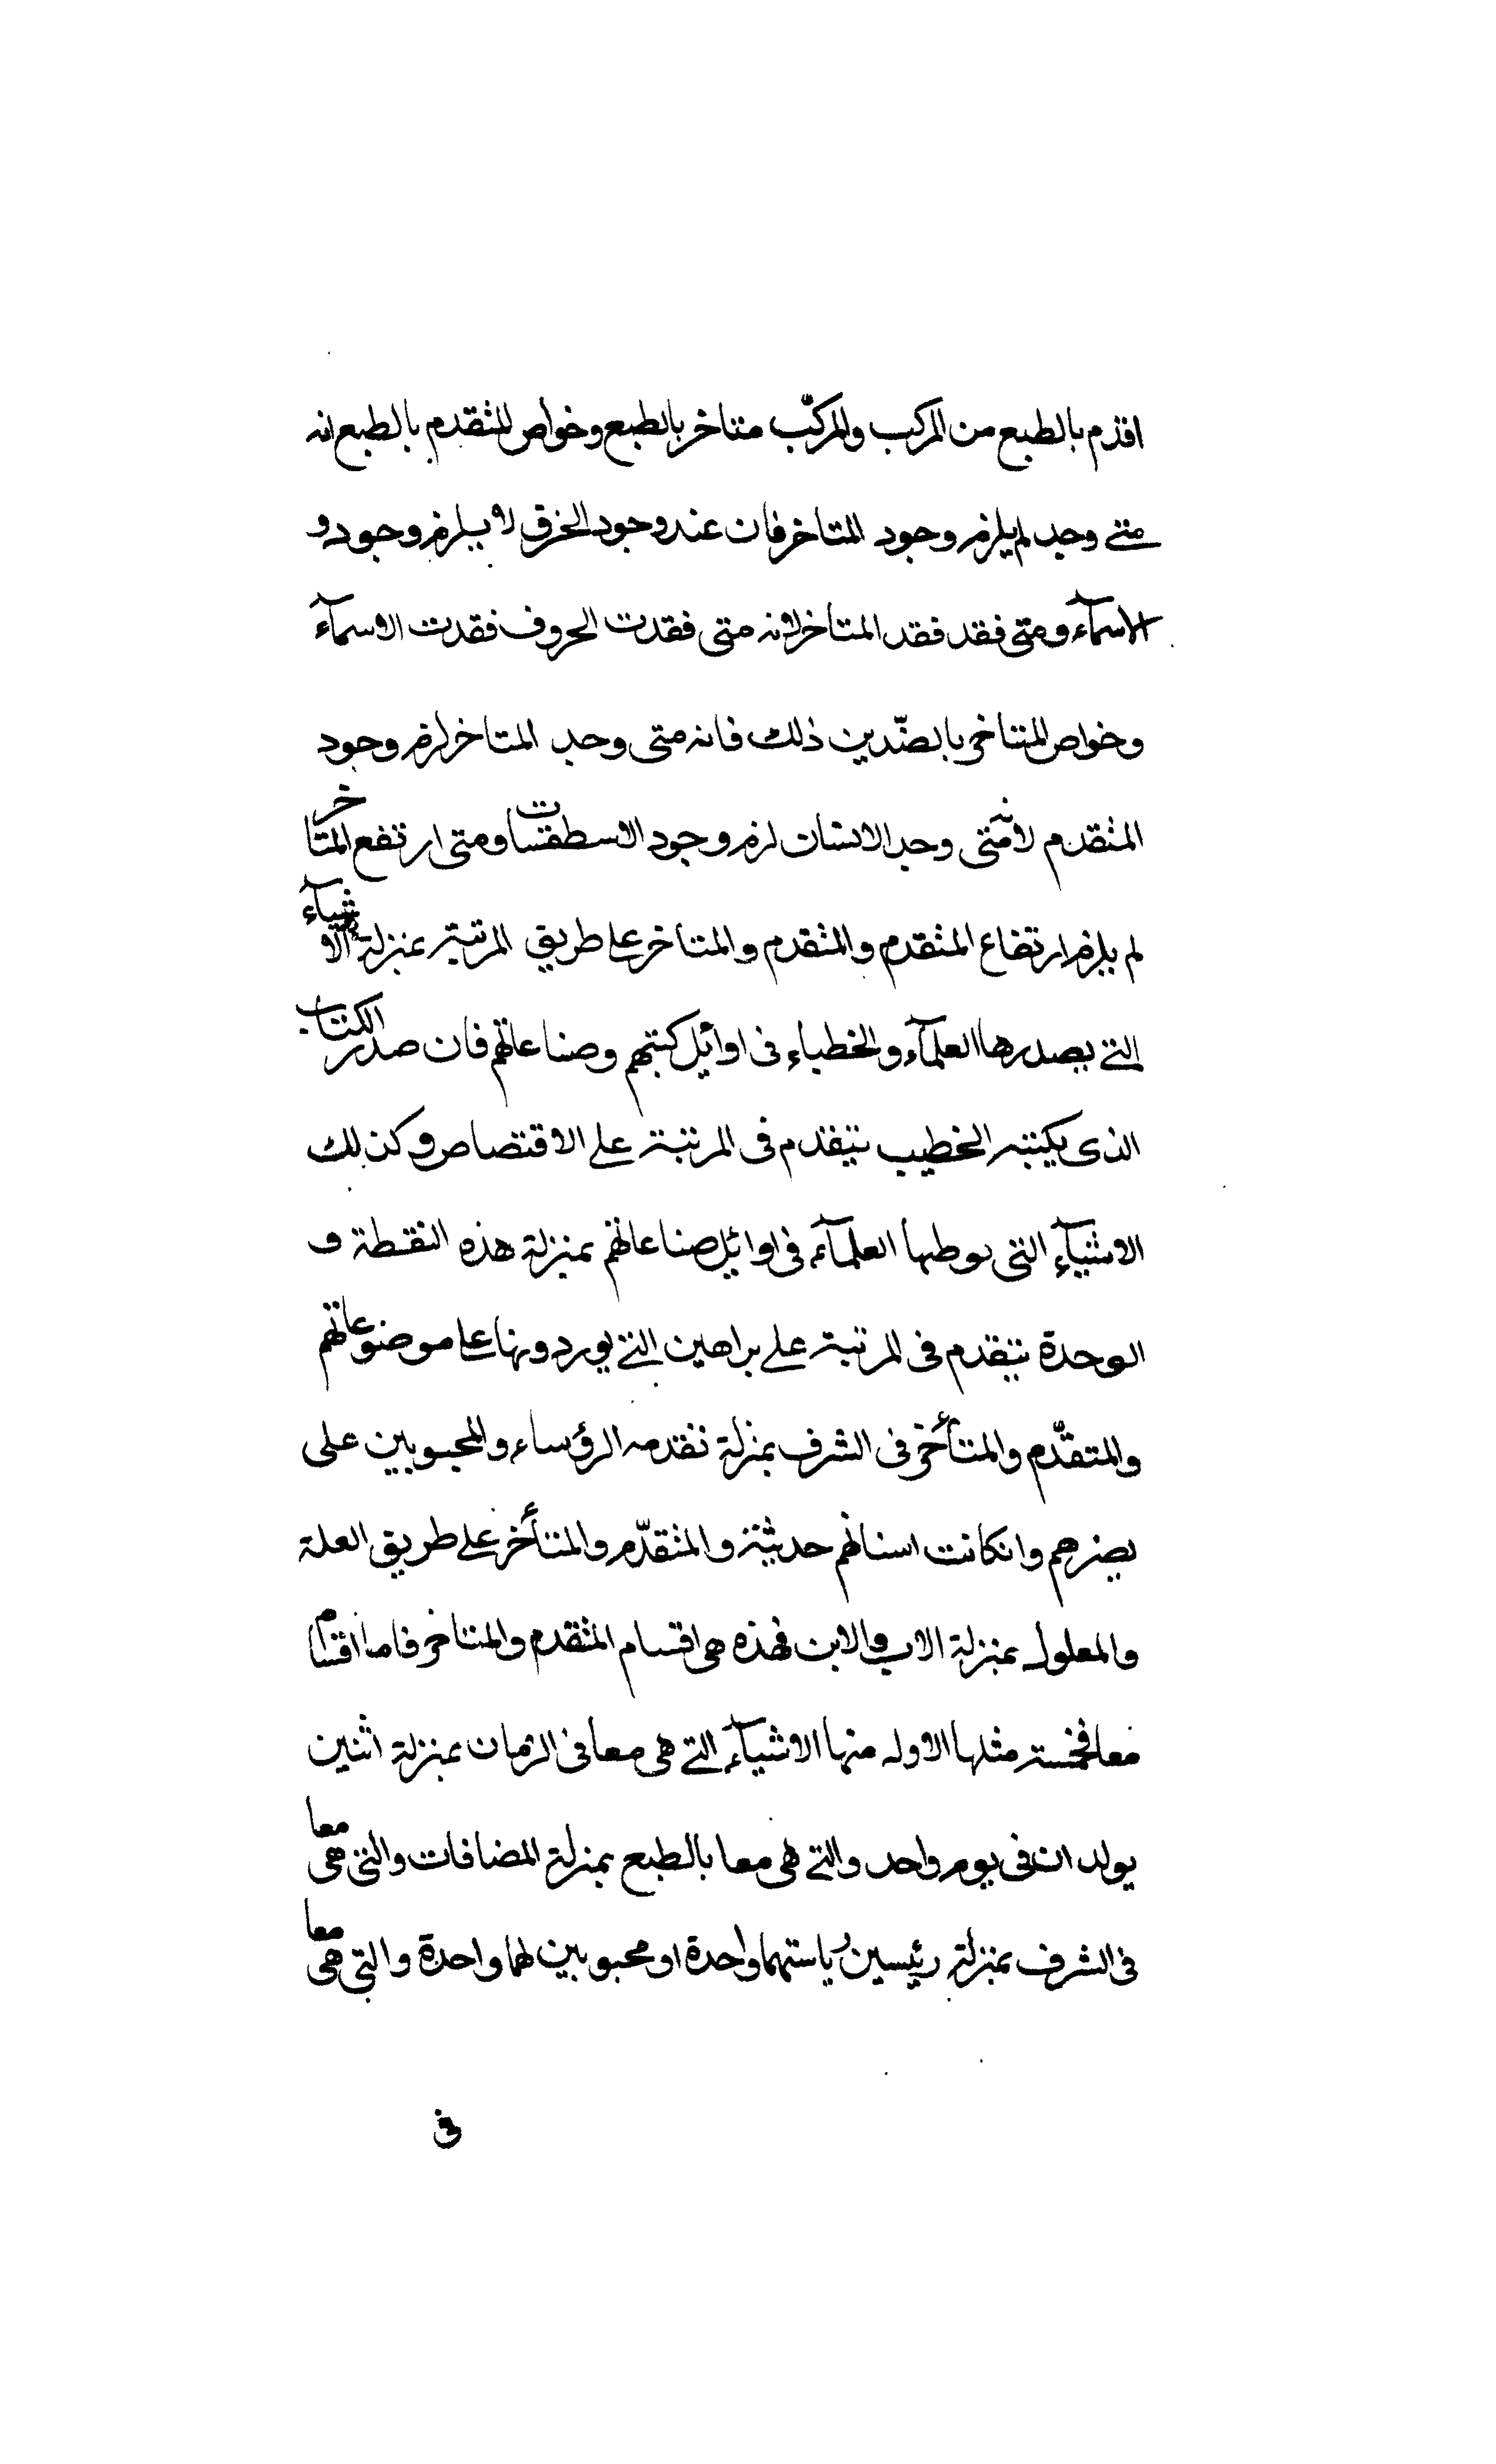 اقدم بالطبع من المركب والمركّب متاخر بالطبع وخواص المتقدم بالطبع انه
متى وجد لم يلزم وجود المتاخر فان عند وجود الخرق لا يلزم وجود و
الاسمآء ومتى فقد فقد المتاخر لانه متى فقدت الحروف فقدت الاسمآء
وخواص المتاخر بالضّدين ذلك فانه متى وجد المتاخر لزم وجود
المتقدم لانه متى وجد الانسان لزم وجود الاسطقسات ومتى ارتفع المتاخر
لم يلزم ارتفاع المتقدم والمتقدم والمتاخر على طريق المرتبة بمنزلة الاشيآء
التى يصدرها العلمآء والخطباء فى اوائل كتبهم وصناعاتهم فان صدر الكتاب
الذى يكتبه الخطيب يتقدم فى المرتبة على الاقتصاص وكذلك
الاشيآء التى يوطيها العلمآء فى اوائل صناعاتهم بمنزلة هذه النقطة و
الوحدة يتقدم فى المرتبة على براهين التى يوردونها على موضوعاتهم
والمتقدّم والمتأخر فى الشرف بمنزلة تقدمه الرؤساء والمحبوبين على
غيرهم وانكانت اسنانهم حديثة والمتقدّم والمتأخر على طريق العلة
والمعلول بمنزلة الاب والابن فهذه هى اقسام المتقدم والمتاخر فاما اقسام
معا فخمسة مثلها الاوله منها الاشيآء التى هى معا فى الزمان بمنزلة اثنين
يولدان فى يوم واحد والتى هى معا بالطبع بمنزلة المضافات والتى هى معا
فى الشرف بمنزلة رئيسين رياستهما واحدة او محبوبين لهما واحدة والتى هى معا
فى